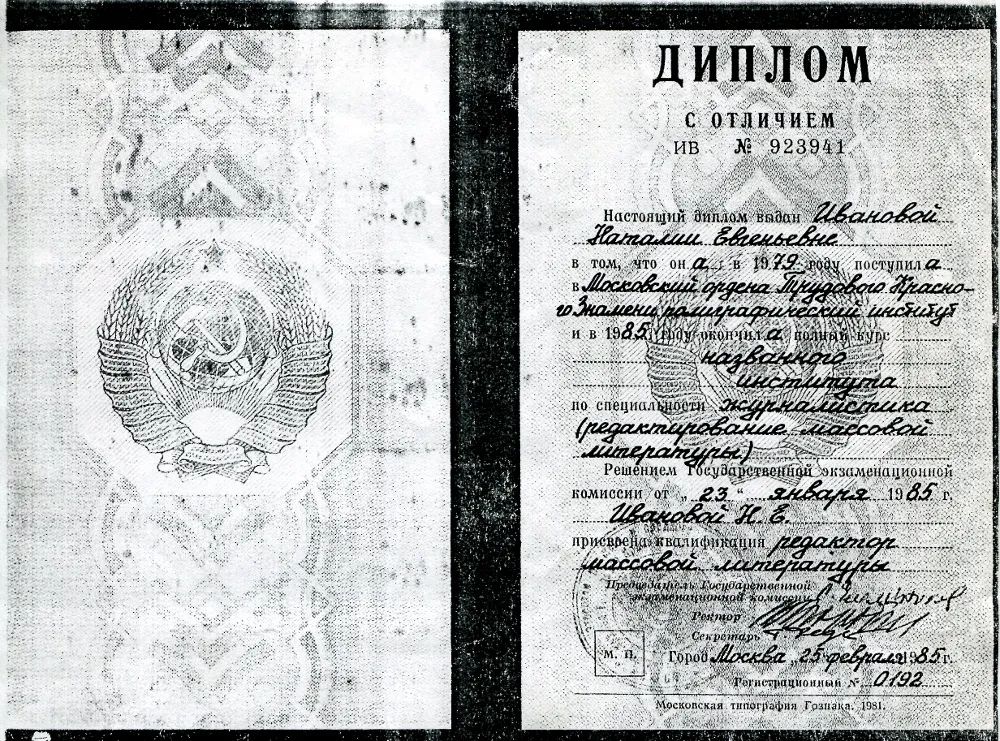 ДИПЛОМ
С ОТЛИЧИЕМ
ИВ № 923941
Настоящий диплом выдан Ивановой
Наталии Евгеньевне
в том, что он а в 1979 году поступил а
в Московский ордена Трудового Красно-
го Знамени полиграфический институт
и в 1985 году окончил а полный курс
названного
института
по специальности журналистика
(редактирование массовой
литературы)
Решением Государственной экзаменационной
комиссии от „ 23 “ января 1985 г.
Ивановой Н. Е.
присвоена квалификация редактор
массовой литературы
Председатель Государственной
экзаменационной комиссии
Ректор
Секретарь
М. П.
Город Москва „ 25 февраля 1985 г.
Регистрационный № 0192
Московская типография Гознака. 1981.